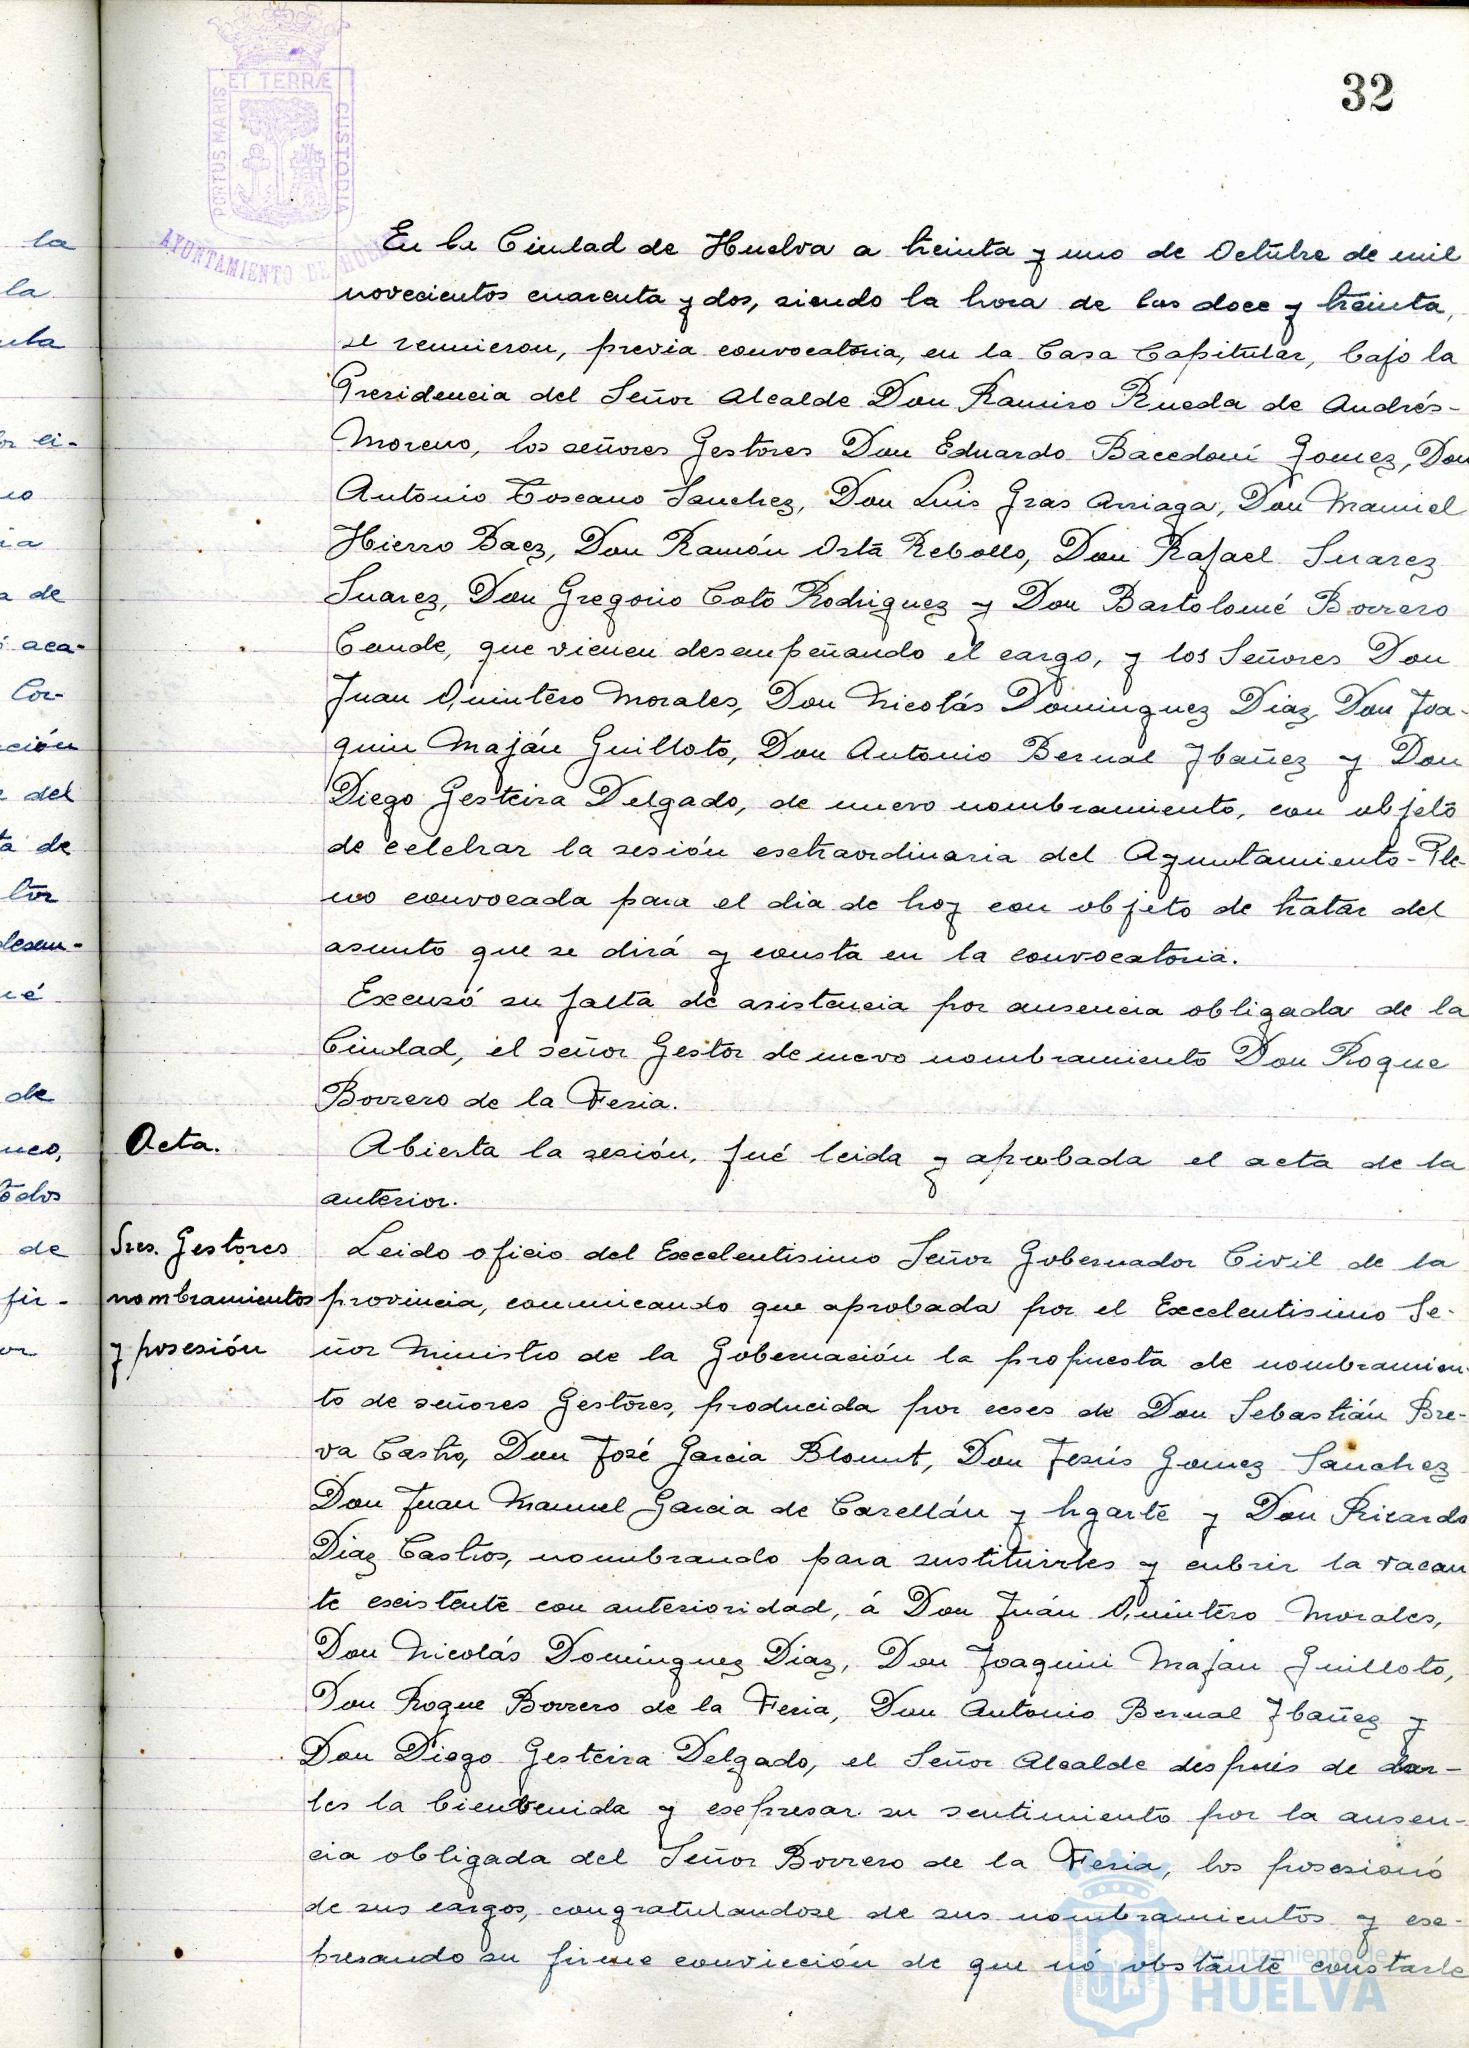 32
ET TERRÆ
PORTUS MARIS
CUSTODIA
AYUNTAMIENTO DE HUELVA
En la Ciudad de Huelva a treinta y uno de Octubre de mil
novecientos cuarenta y dos, siendo la hora de las doce y treinta,
se reunieron, previa convocatoria, en la Casa Capitular, bajo la
Presidencia del Señor Alcalde Don Ramiro Rueda de Andrés-
Moreno, los señores Gestores Don Eduardo Bacedoni Gomez, Don
Antonio Toscano Sanchez, Don Luis Gras Arriaga, Don Manuel
Hierro Baez, Don Ramón Orta Rebollo, Don Rafael Suarez
Suarez, Don Gregorio Coto Rodriguez y Don Bartolomé Borrero
Conde, que vienen desempeñando el cargo, y los Señores Don
Juan Quintero Morales, Don Nicolás Dominguez Diaz, Don Joa-
quin Maján Guilloto, Don Antonio Bernal Ibañez y Don
Diego Gesteira Delgado, de nuevo nombramiento, con objeto
de celebrar la sesión esctraordinaria del Ayuntamiento-Ple-
no convocada para el dia de hoy con objeto de tratar del
asunto que se dirá y consta en la convocatoria.
Excusó su falta de asistencia por ausencia obligada de la
Ciudad, el señor Gestor de nuevo nombramiento Don Roque
Borrero de la Feria.
Acta.
Abierta la sesión, fué leida y aprobada el acta de la
anterior.
Sres. Gestores
nombramientos
y posesión
Leido oficio del Excelentisimo Señor Gobernador Civil de la
provincia, comunicando que aprobada por el Excelentisimo Se-
ñor Ministro de la Gobernación la propuesta de nombramien-
to de señores Gestores, producida por ceses de Don Sebastián Bre-
va Castro, Don José Garcia Blount, Don Jesús Gomez Sanchez
Don Juan Manuel Garcia de Casellán y Ugarte y Don Ricardo
Diaz Castros, nombrando para sustituirles y cubrir la vacan
te escistente con anterioridad, á Don Juán Quintero Morales,
Don Nicolás Domínguez Diaz, Don Joaquin Majan Guilloto,
Don Roque Borrero de la Feria, Don Antonio Bernal Ibañez y
Don Diego Gesteira Delgado, el Señor Alcalde después de dar-
les la bienbenida y escpresar su sentimiento por la ausen-
cia obligada del Señor Borrero de la Feria, los posesionó
de sus cargos, congratulandose de sus nombramientos y esc-
presando su firme convicción de que nó obstante constarle
Ayuntamiento de
HUELVA
la
la
de
aca-
Cor-
ción
del
de
tor
desem-
de
de
fir-